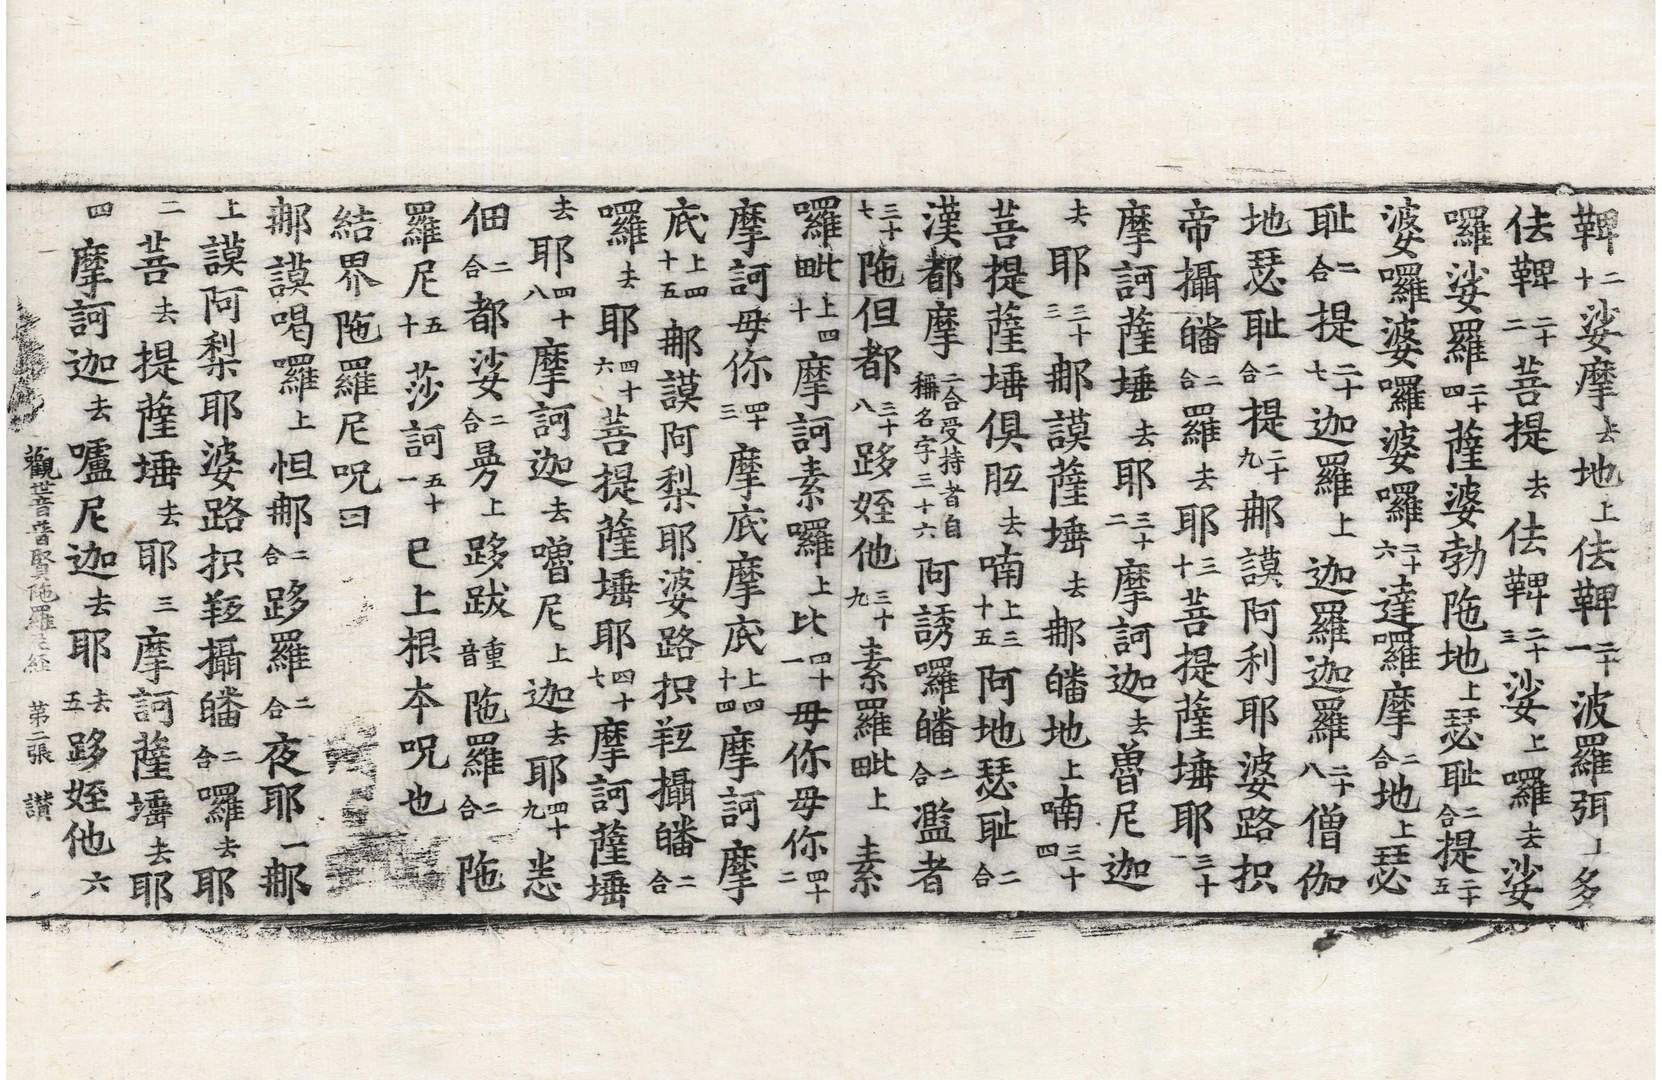 鞞二十娑摩去地上佉鞞二十一波羅弭上多
佉鞞二十二菩提去佉鞞二十三娑上囉去娑
囉娑羅二十四薩婆勃陁地上瑟耻二合提二十五
婆囉婆囉婆囉二十六達囉摩二合地上瑟
耻二合提二十七迦羅上迦羅迦羅二十八僧伽
地瑟耻二合提二十九𨚗謨阿利耶婆路抧
帝攝皤二合羅去耶三十菩提薩埵耶三十一
摩訶薩埵去耶三十二摩訶迦去魯尼迦
去耶三十三𨚗謨薩埵去𨚗皤地上喃三十四
菩提薩埵俱胝去喃上三十五阿地瑟耻二合
漢都摩二合受持者自稱名字三十六阿誘囉皤二合濫者
三十七陁但都三十八跢姪他三十九素羅毗上素
囉毗上四十摩訶素囉上比四十一毋你毋你四十二
摩訶毋你四十三摩底摩底上四十四摩訶摩
底上四十五𨚗謨阿梨耶婆路抧羝攝皤二合
囉去耶四十六菩提薩埵耶四十七摩訶薩埵
去耶四十八摩訶迦去嚕尼上迦去耶四十九悉
佃二合都娑二合曼上跢跋重音陁羅二合陁
羅尼五十莎訶五十一已上根本呪也
結界陁羅尼呪曰
𨚗謨喝囉上怛𨚗二合跢羅二合夜耶一𨚗
上謨阿梨耶婆路抧羝攝皤二合囉去耶
二菩提薩埵去耶三摩訶薩埵去耶
四摩訶迦去嚧尼迦去耶去五跢姪他六
觀世音普賢陁羅尼經 第二張 讃